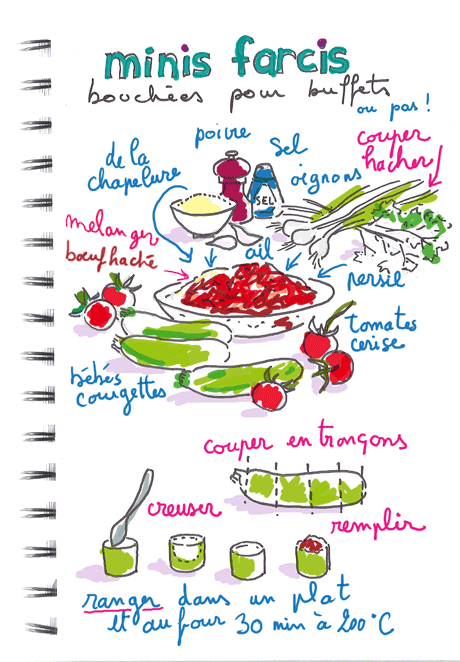 minis farcis
bouchées pour buffets
ou pas !
poivre
Sel
de la
chapelure
oignons
couper
hacher
SEL
mélanger
bœuf haché
ail
persil
tomates
cerise
bébés
courgettes
couper en tronçons
creuser
remplir
ranger dans un plat
et au four 30 min à 200°C